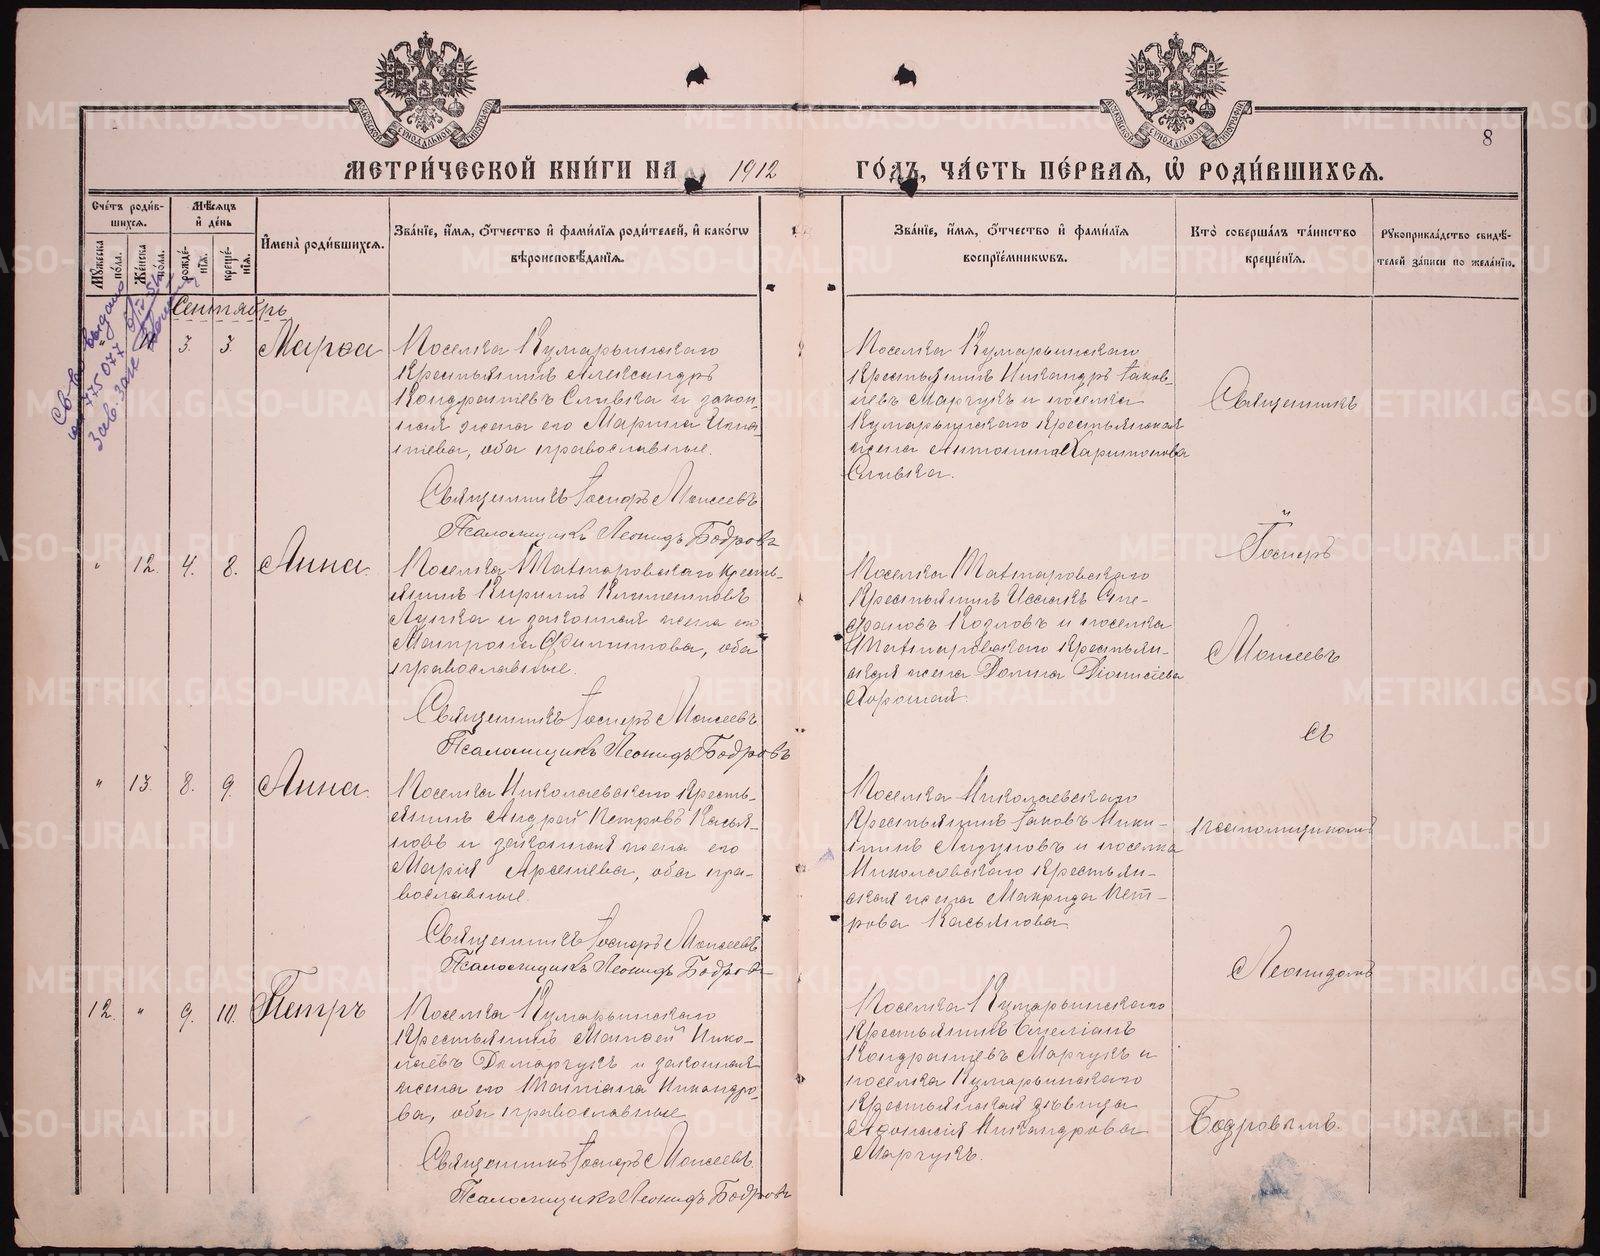 МЕТРИ́ЧЕСКОЙ КНИ́ГИ НА 1912 ГО́ДЪ, ЧА́СТЬ ПЕ́РВАЯ, Ѡ РОДИ́ВШИХСЯ.
8
Сче́тъ роди́в-
шихся.
Мѣ́сяцъ
и҆ де́нь
Му́жеска
по́ла.
Же́нска
по́ла.
рожде́-
нїя.
креще́-
нїя.
И҆мена̀ роди́вшихся.
Зва́нїе, и҆́мя, ѻ҆́тчество и҆ фами́лїя роди́телей, и҆ како́гѡ
вѣроисповѣ́данїя.
Зва́нїе, и҆́мя, ѻ҆́тчество и҆ фами́лїя
воспрїе́мникѡвъ.
Кто̀ соверша́лъ та́инство
креще́нїя.
Рꙋкоприкла́дство свидѣ́-
телей за́писи по жела́нїю.
Сентябрь
3. 3. Марѳа
Поселка Кумарьинскаго
крестьянинъ Александръ
Кондратьевъ Сливка и закон-
ная жена его Марина Игна-
тьева, оба православные.
Священникъ Іосифъ Моисеевъ
Псаломщикъ Леонидъ Бодровъ
Поселка Кумарьинскаго
крестьянинъ Никандръ Іаков-
левъ Марчукъ и поселка
Кумарьинскаго крестьянская
жена Антонина Харитонова
Сливка.
" 12. 4. 8. Анна.
Поселка Татаровскаго кресть-
янинъ Кириллъ Климентовъ
и законная жена его
Матрона Филиппова, оба
православные.
Священникъ Іосифъ Моисеевъ
Псаломщикъ Леонидъ Бодровъ
Поселка Татаровскаго
крестьянинъ Исаакъ Сте-
фановъ Козловъ и поселка
Татаровскаго крестьян-
ская жена Домна Діонисіева
Хорошая.
" 13. 8. 9. Анна.
Поселка Николаевскаго кресть-
янинъ Андрей Петровъ Касья-
новъ и законная жена его
Марія Арсеньева, оба пра-
вославные.
Священникъ Іосифъ Моисеевъ
Псаломщикъ Леонидъ Бодровъ
Поселка Николаевскаго
крестьянинъ Іаковъ Ники-
тинъ и поселка
Николаевскаго крестьян-
ская жена Макрида Пет-
рова Касьянова.
12. " 9. 10. Петръ
Поселка Кумарьинскаго
крестьянинъ Матѳей Нико-
лаевъ Демарчукъ и законная
жена его Татіана Никандро-
ва, оба православные.
Священникъ Іосифъ Моисеевъ
Псаломщикъ Леонидъ Бодровъ
Поселка Кумарьинскаго
крестьянинъ Емеліанъ
Кондратьевъ Марчукъ и
поселка Кумарьинскаго
крестьянская дѣвица
Аѳанасія Никандрова
Марчукъ.
Священникъ
Іосифъ
Моисеевъ
съ
псаломщикомъ
Леонидомъ
Бодровымъ.
METRIKI.GASO-URAL.RU